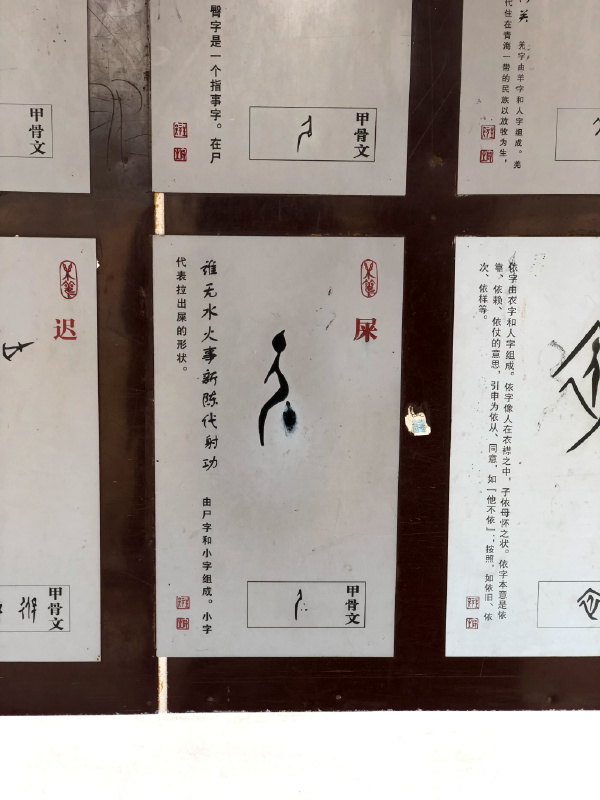 羌字由羊字和人字组成。羌
代住在青海一带的民族以放牧为生，
甲骨文
臀字是一个指事字。在尸
甲骨文
依字由衣字和人字组成。依字像人在衣襟之中，子依母怀之状。依字本意是依
靠、依赖、依仗的意思，引申为依从、同意，如「他不依」；按照，如依旧、依
次、依样等。
屎
谁无水火事新陈代射功
由尸字和小字组成。小字
代表拉出屎的形状。
甲骨文
迟
甲骨文